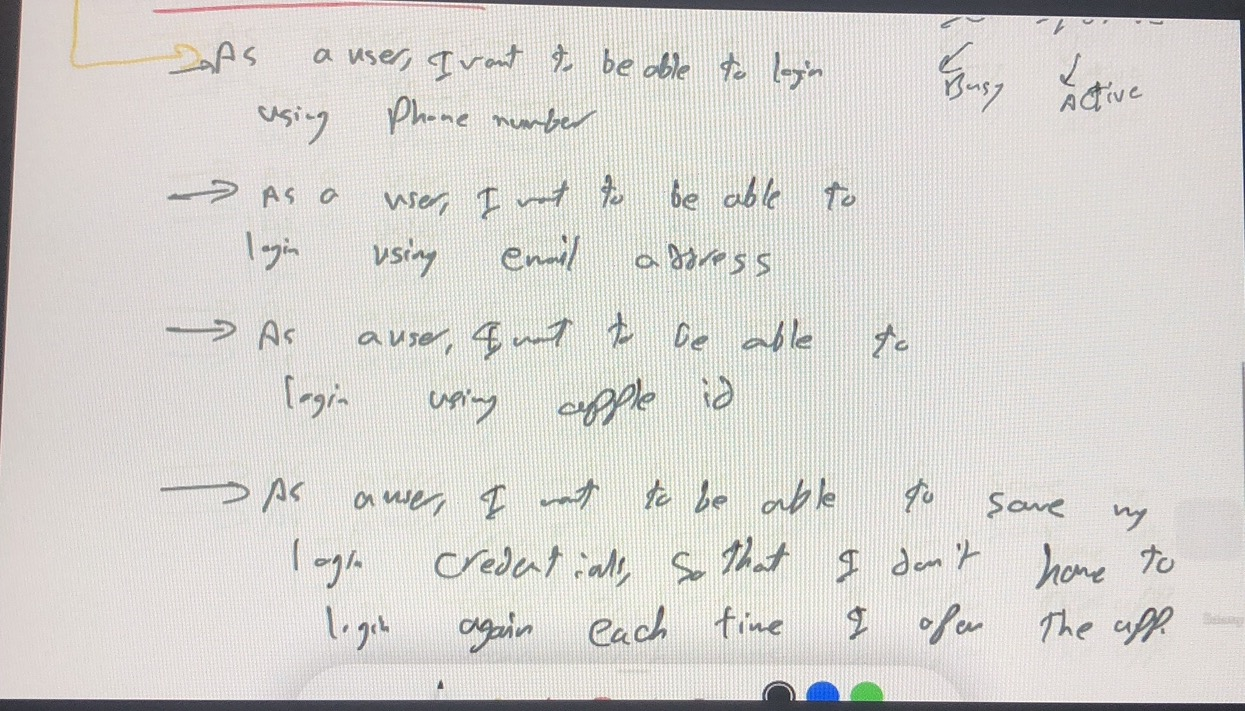 As a user, I want to be able to login
using Phone number
Busy
Active
As a user, I want to be able to
login using email address
As a user, I want to be able to
login using apple id
As a user, I want to be able to save my
login credentials, so that I don't have to
login again each time I open the app.